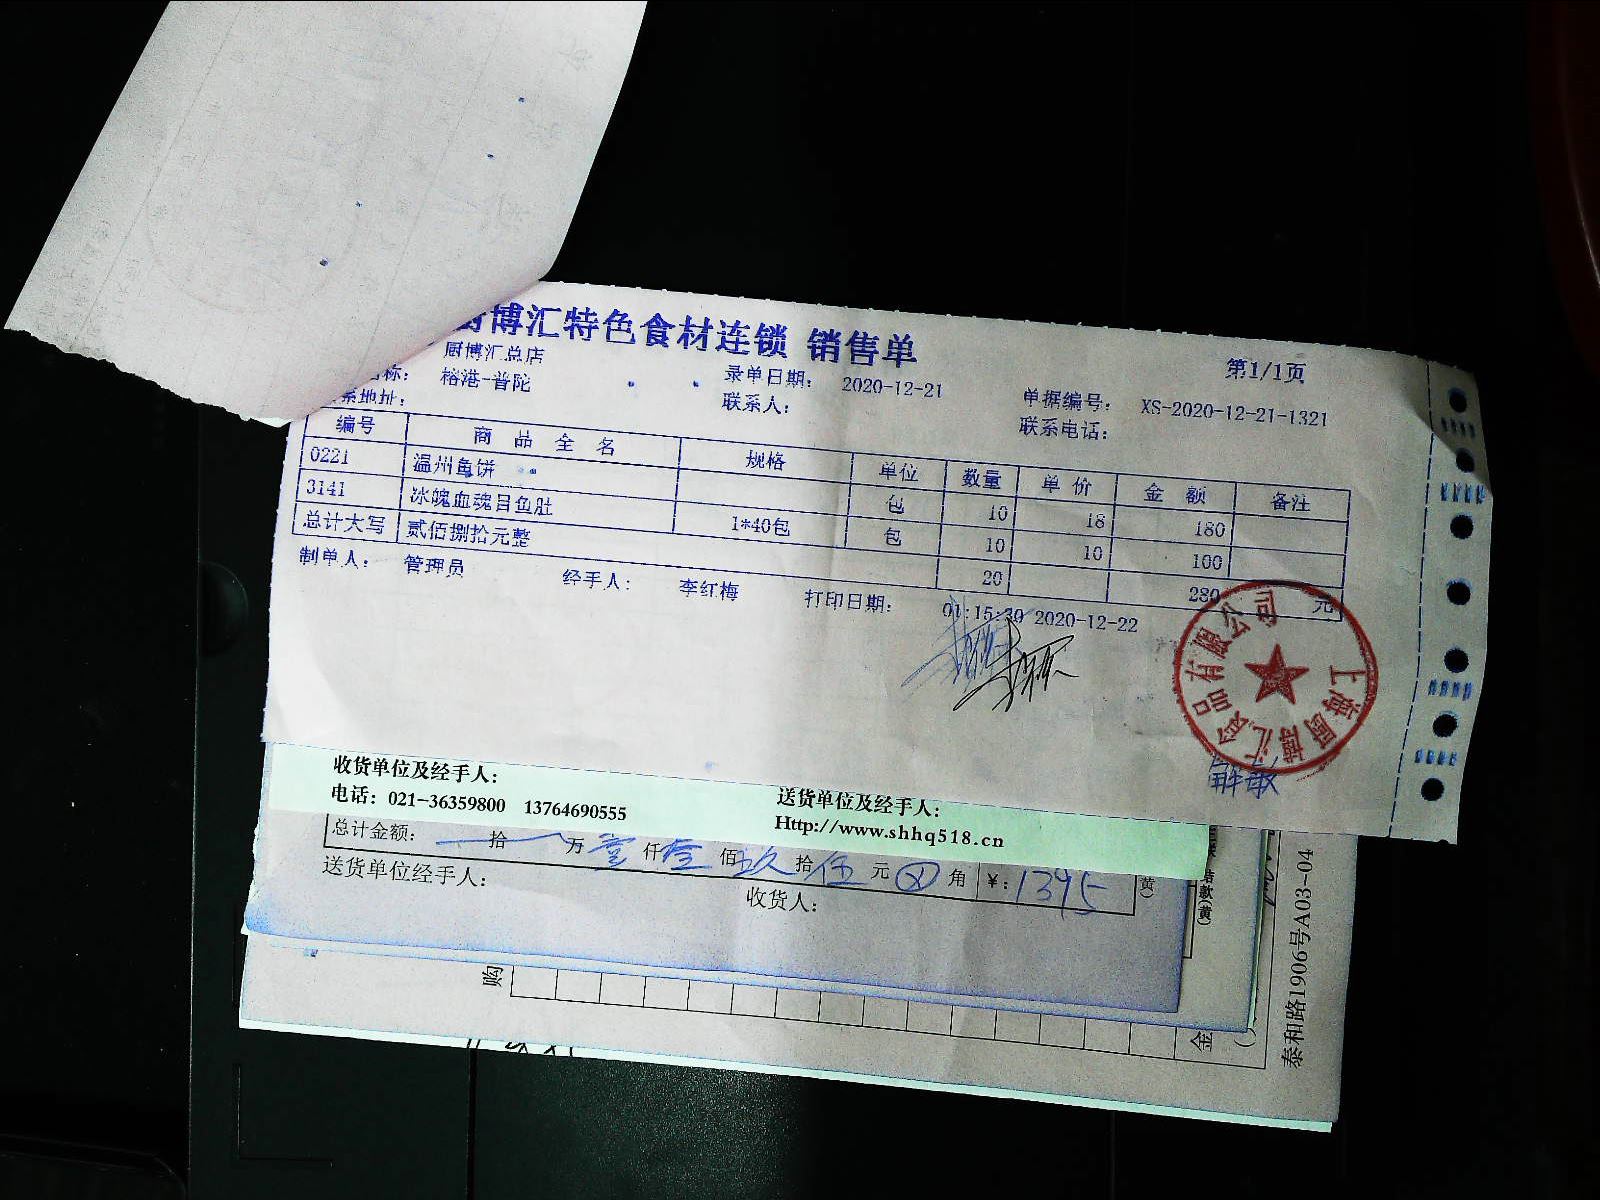 厨博汇特色食材连锁 销售单
第1/1页
厨博汇总店
名称： 榕港-普陀 录单日期： 2020-12-21 单据编号： XS-2020-12-21-1321
联系地址： 联系人： 联系电话：
编号 商品全名 规格 单位 数量 单价 金额 备注
0221 温州鱼饼 包 10 18 180
3141 冰魄血魂目鱼肚 1*40包 包 10 10 100
总计大写 贰佰捌拾元整 20 280 元
制单人： 管理员 经手人： 李红梅 打印日期： 01:15:30 2020-12-22
上海厨博汇食品有限公司
收货单位及经手人： 送货单位及经手人：
电话：021-36359800 13764690555 Http://www.shhq518.cn
总计金额： 拾 万 壹 仟 叁 佰 玖 拾 伍 元 角 ¥：1395
送货单位经手人： 收货人：
(黄)
结款(黄)
泰和路1906号A03-04
购
金